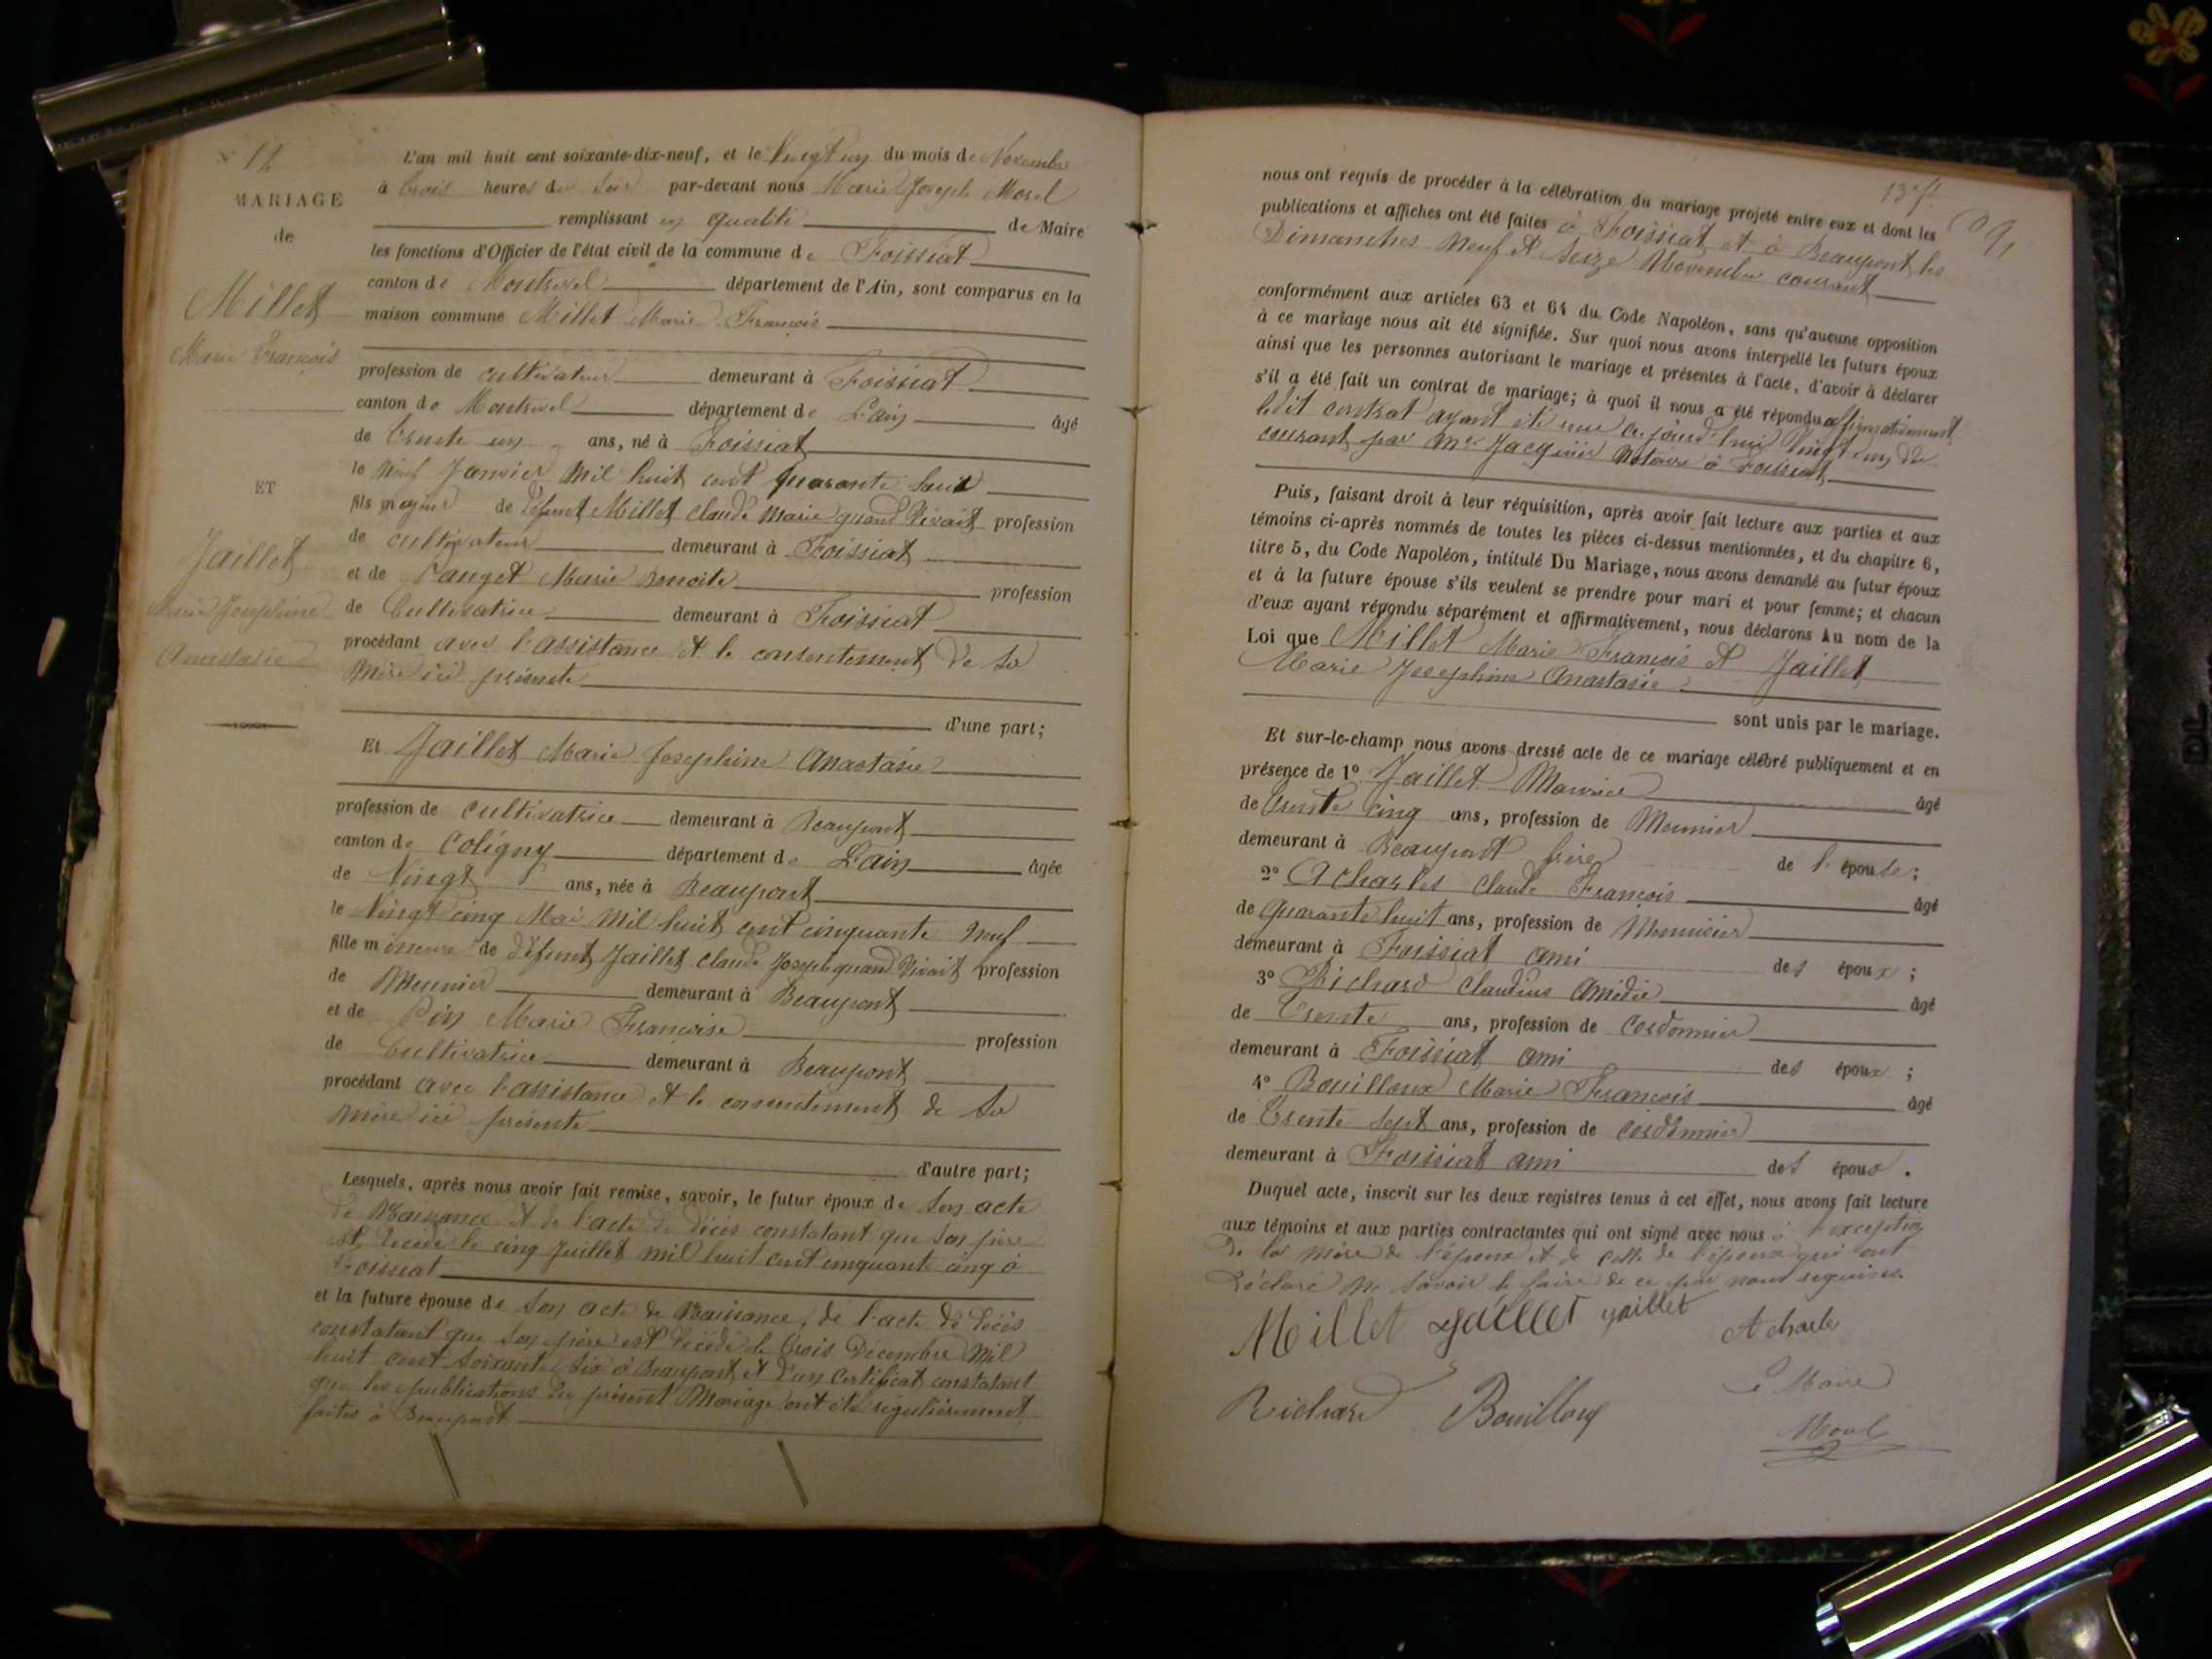 N° 12
MARIAGE
de
Millet
Marie François
ET
Jaillet
Marie Josephine
Anastasie
L'an mil huit cent soixante-dix-neuf, et le Vingt un du mois de Novembre
à trois heures du soir par-devant nous Marie Joseph Morel
remplissant en qualité de Maire
les fonctions d'Officier de l'état civil de la commune de Foissiat
canton de Montrevel département de l'Ain, sont comparus en la
maison commune Millet Marie François
profession de cultivateur demeurant à Foissiat
canton de Montrevel département de L'ain âgé
de trente un ans, né à Foissiat
le neuf Janvier mil huit cent quarante huit
fils majeur de défunt Millet Claude Marie quand vivait profession
de cultivateur demeurant à Foissiat
et de Pauget Marie Benoite profession
de Cultivatrice demeurant à Foissiat
procédant avec l'assistance et le consentement de sa
mère ici présente
d'une part;
Et Jaillet Marie Josephine Anastasie
profession de cultivatrice demeurant à Beaupont
canton de Coligny département de L'ain âgée
de Vingt ans, née à Beaupont
le Vingt cinq Mai mil huit cent cinquante neuf
fille mineure de défunt Jaillet Claude Joseph quand vivait profession
de Meunier demeurant à Beaupont
et de Pin Marie Françoise profession
de Cultivatrice demeurant à Beaupont
procédant avec l'assistance et le consentement de sa
mère ici présente
d'autre part;
Lesquels, après nous avoir fait remise, savoir, le futur époux de son acte
de Naissance et de l'acte de décès constatant que son père
est décédé le cinq Juillet mil huit cent cinquante cinq à
Foissiat
et la future épouse de son acte de Naissance, de l'acte de décès
constatant que son père est décédé le trois Décembre mil
huit cent soixante six à Beaupont et d'un certificat constatant
que les publications du présent Mariage ont été régulièrement
faites à Beaupont
13e f.
nous ont requis de procéder à la célébration du mariage projeté entre eux et dont les
publications et affiches ont été faites à Foissiat et à Beaupont les
Dimanches neuf et seize Novembre courant
conformément aux articles 63 et 64 du Code Napoléon, sans qu'aucune opposition
à ce mariage nous ait été signifiée. Sur quoi nous avons interpellé les futurs époux
ainsi que les personnes autorisant le mariage et présentes à l'acte, d'avoir à déclarer
s'il a été fait un contrat de mariage; à quoi il nous a été répondu affirmativement
ledit contrat ayant été reçu cejourd'hui Vingt un du
courant par Me Jacquier Notaire à Foissiat
Puis, faisant droit à leur réquisition, après avoir fait lecture aux parties et aux
témoins ci-après nommés de toutes les pièces ci-dessus mentionnées, et du chapitre 6,
titre 5, du Code Napoléon, intitulé Du Mariage, nous avons demandé au futur époux
et à la future épouse s'ils veulent se prendre pour mari et pour femme; et chacun
d'eux ayant répondu séparément et affirmativement, nous déclarons Au nom de la
Loi que Millet Marie François et Jaillet
Marie Josephine Anastasie
sont unis par le mariage.
Et sur-le-champ nous avons dressé acte de ce mariage célébré publiquement et en
présence de 1° Jaillet Maurice âgé
de trente cinq ans, profession de Meunier
demeurant à Beaupont frère de l'épouse;
2° Acharles Claude François âgé
de quarante huit ans, profession de Menuisier
demeurant à Foissiat ami des époux;
3° Richard Claudius Amédée âgé
de Trente ans, profession de Cordonnier
demeurant à Foissiat ami des époux;
4° Bouilloux Marie François âgé
de Trente sept ans, profession de cordonnier
demeurant à Foissiat ami des époux.
Duquel acte, inscrit sur les deux registres tenus à cet effet, nous avons fait lecture
aux témoins et aux parties contractantes qui ont signé avec nous à l'exception
de la mère de l'époux et de celle de l'épouse qui ont
déclaré ne savoir le faire de ce par nous requises.
Millet Jaillet Jaillet Acharles
Le Maire
Richard Bouilloux
Morel